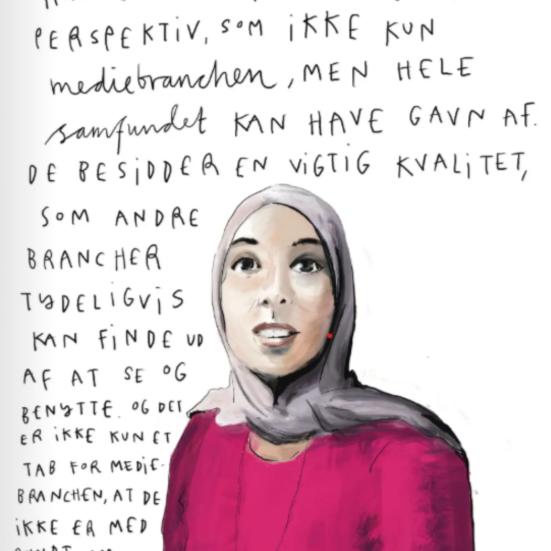 PERSPEKTIV, SOM IKKE KUN
mediebranchen, MEN HELE
samfundet KAN HAVE GAVN AF.
DE BESIDDER EN VIGTIG KVALITET,
SOM ANDRE
BRANCHER
TYDELIGVIS
KAN FINDE UD
AF AT SE OG
BENYTTE. OG DET
ER IKKE KUN ET
TAB FOR MEDIE-
BRANCHEN, AT DE
IKKE ER MED